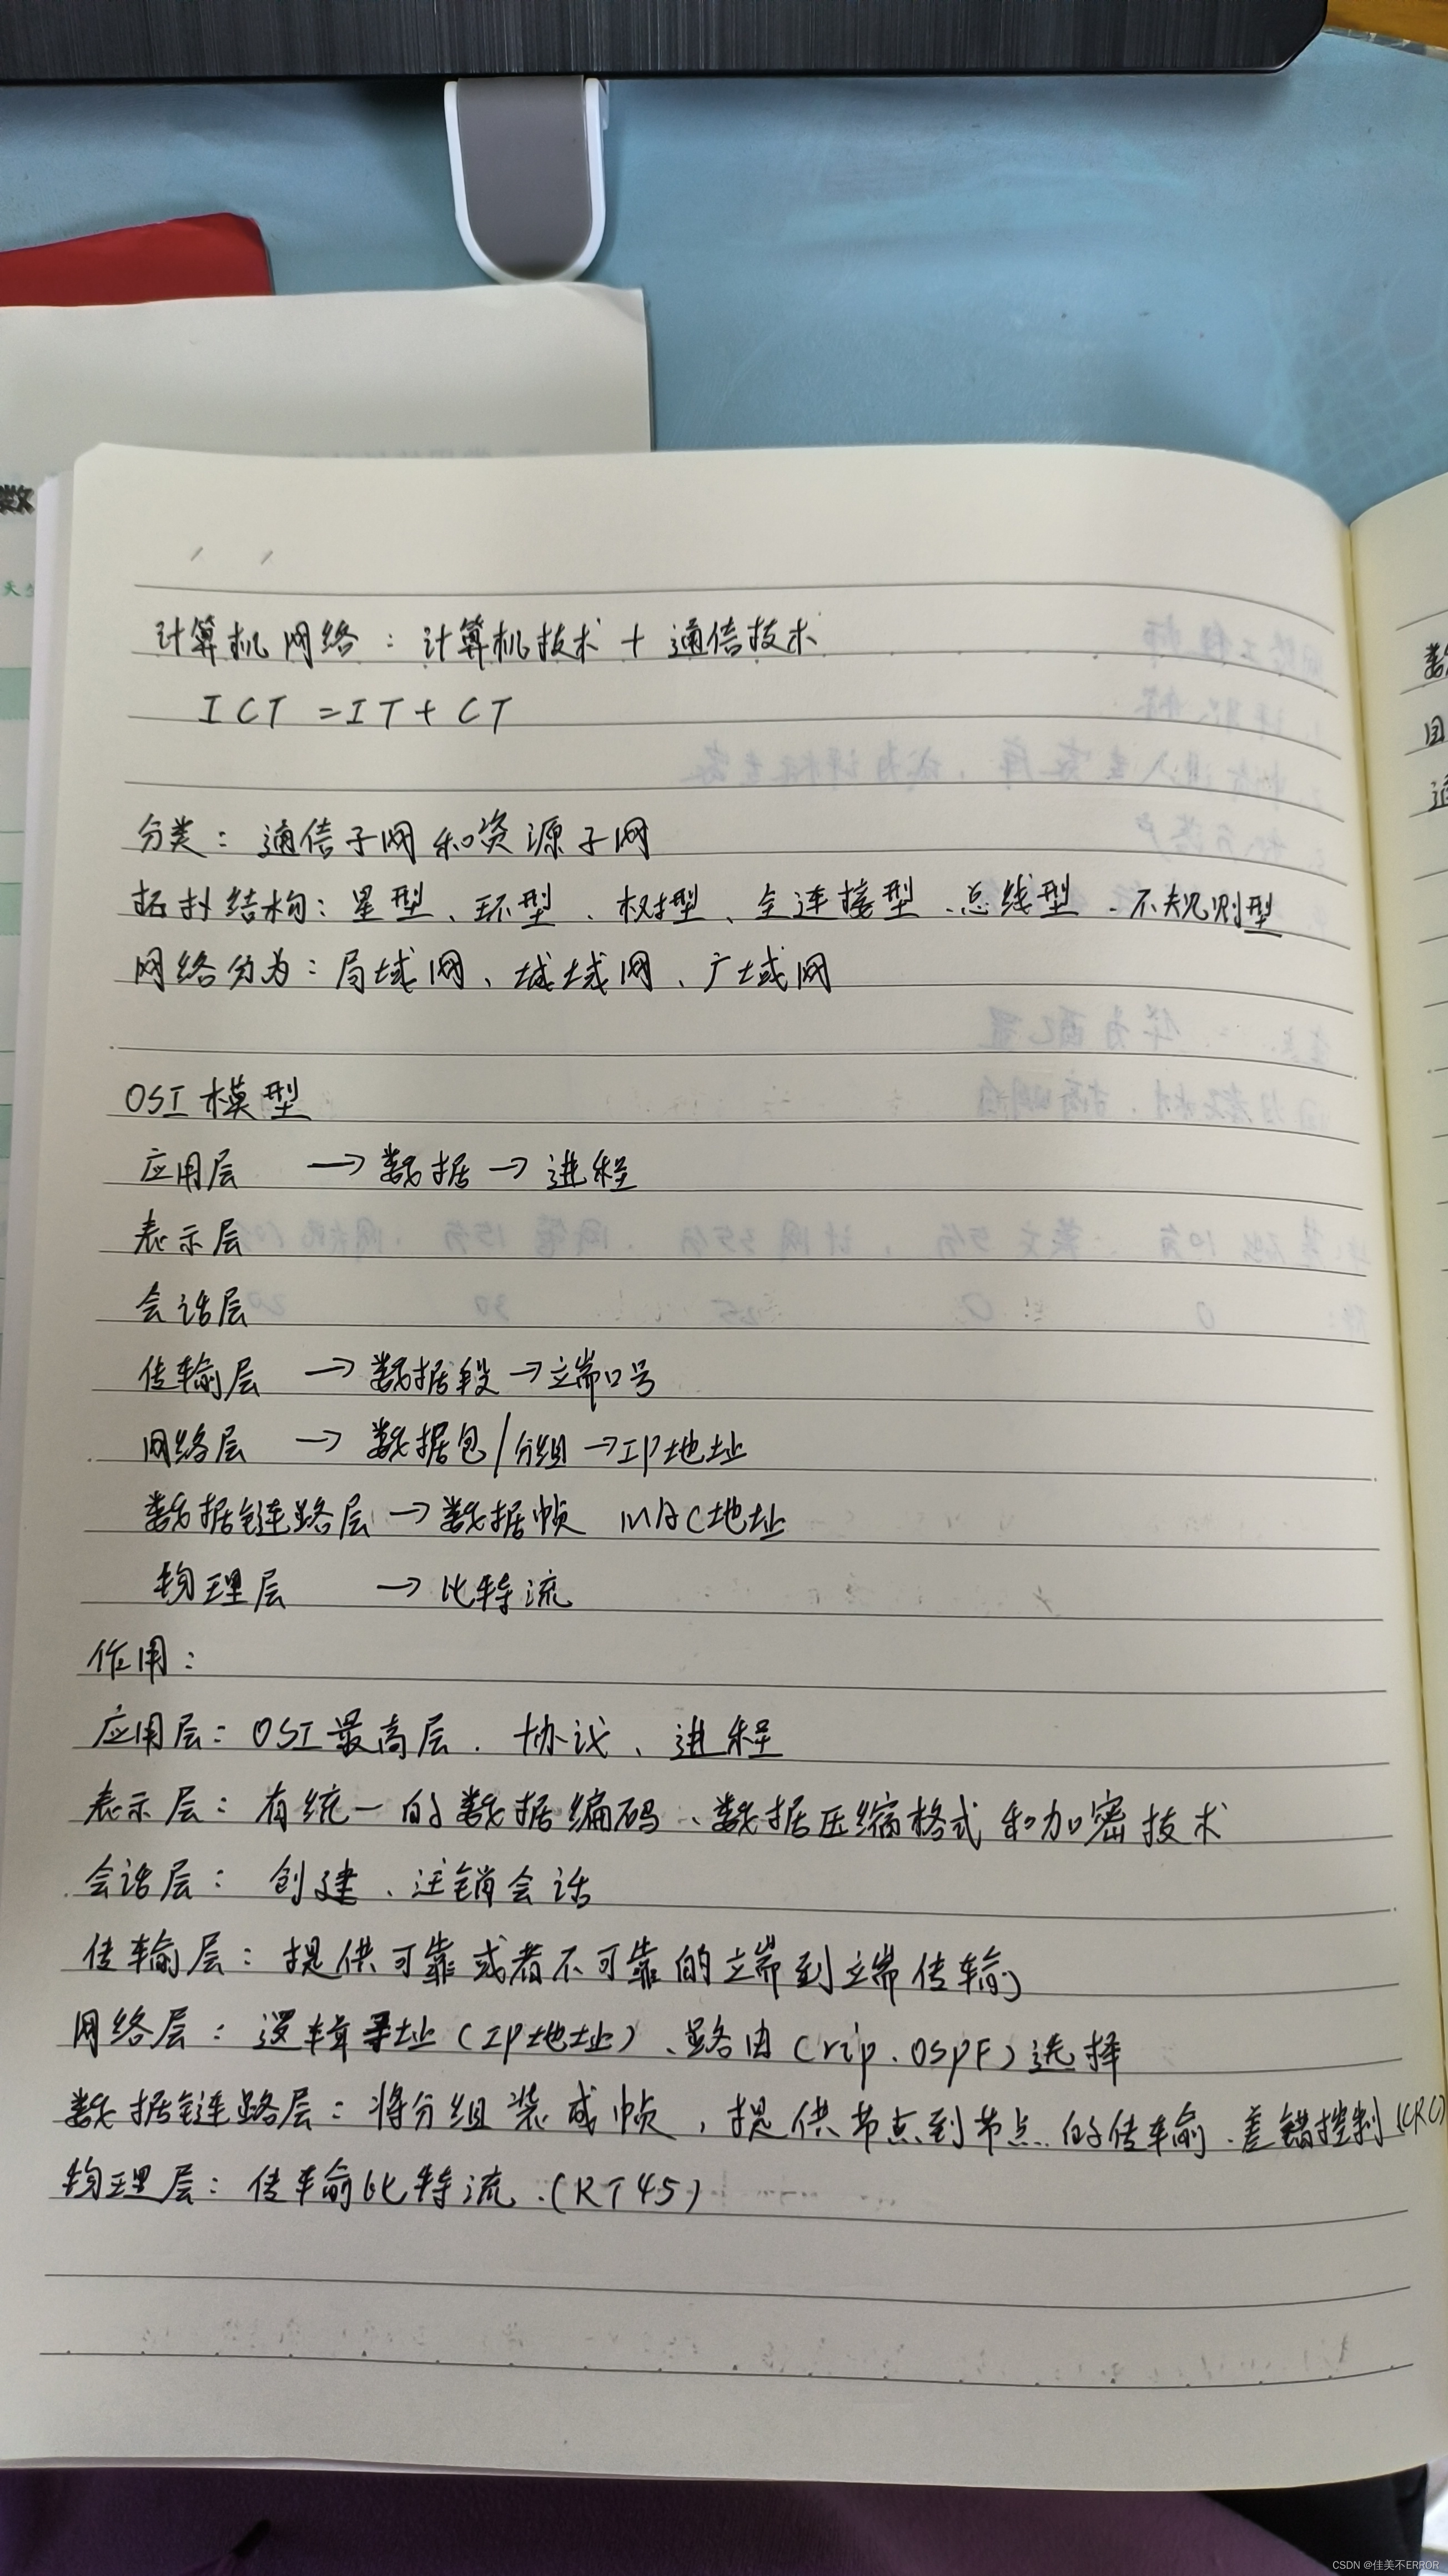 计算机网络：计算机技术 + 通信技术
ICT = IT + CT
分类：通信子网和资源子网
拓扑结构：星型、环型、树型、全连接型、总线型、不规则型
网络分为：局域网、城域网、广域网
OSI 模型
应用层 → 数据 → 进程
表示层
会话层
传输层 → 数据段 → 端口号
网络层 → 数据包/分组 → IP地址
数据链路层 → 数据帧 MAC地址
物理层 → 比特流
作用：
应用层：OSI最高层、协议、进程
表示层：有统一的数据编码、数据压缩格式和加密技术
会话层：创建、注销会话
传输层：提供可靠或者不可靠的端到端传输
网络层：逻辑寻址（IP地址）、路由（rip、OSPF）选择
数据链路层：将分组装成帧，提供节点到节点的传输、差错控制（CRC）
物理层：传输比特流.（RT45）
数
CSDN @佳美不ERROR